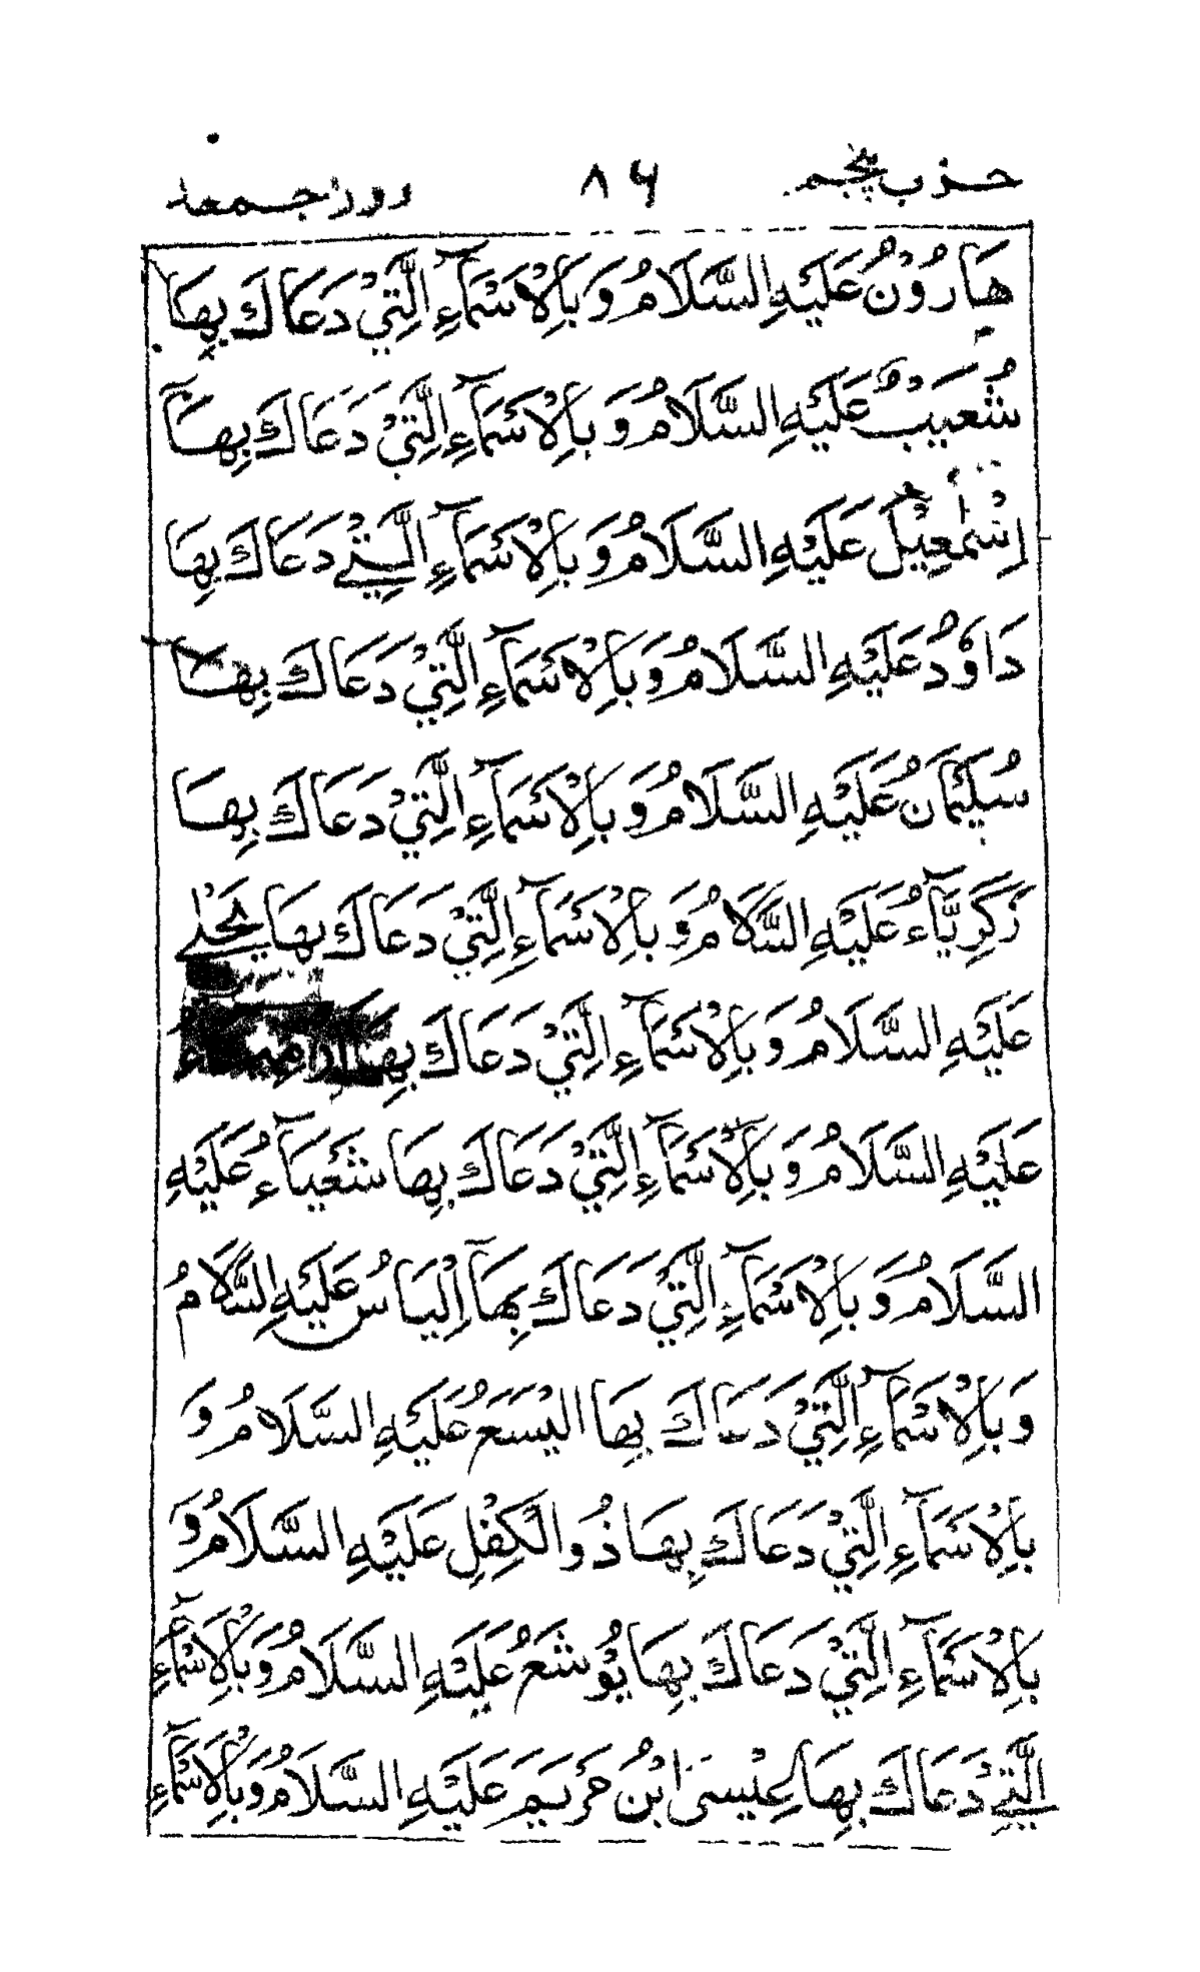 حزب پنجم ۸۶ روز جمعه
هَارُوْنُ عَلَيْهِ السَّلَامُ وَبِالْاَسْمَآءِ الَّتِيْ دَعَاكَ بِهَا
شُعَيْبُ عَلَيْهِ السَّلَامُ وَ بِالْاَسْمَآءِ الَّتِيْ دَعَاكَ بِهَآ
اِسْمٰعِيْلُ عَلَيْهِ السَّلَامُ وَ بِالْاَسْمَآءِ الَّتِيْ دَعَاكَ بِهَا
دَاوٗدُ عَلَيْهِ السَّلَامُ وَ بِالْاَسْمَآءِ الَّتِيْ دَعَاكَ بِهَا
سُلَيْمَانُ عَلَيْهِ السَّلَامُ وَ بِالْاَسْمَآءِ الَّتِيْ دَعَاكَ بِهَا
زَكَرِيَّآءُ عَلَيْهِ السَّلَامُ وَ بِالْاَسْمَآءِ الَّتِيْ دَعَاكَ بِهَا يَحْيٰى
عَلَيْهِ السَّلَامُ وَ بِالْاَسْمَآءِ الَّتِيْ دَعَاكَ بِهَا
عَلَيْهِ السَّلَامُ وَ بِالْاَسْمَآءِ الَّتِيْ دَعَاكَ بِهَا شَعْيَآءُ عَلَيْهِ
السَّلَامُ وَ بِالْاَسْمَآءِ الَّتِيْ دَعَاكَ بِهَآ اِلْيَاسُ عَلَيْهِ السَّلَامُ
وَ بِالْاَسْمَآءِ الَّتِيْ دَعَاكَ بِهَا الْيَسَعُ عَلَيْهِ السَّلَامُ وَ
بِالْاَسْمَآءِ الَّتِيْ دَعَاكَ بِهَا ذُوالْكِفْلِ عَلَيْهِ السَّلَامُ وَ
بِالْاَسْمَآءِ الَّتِيْ دَعَاكَ بِهَا يُوْشَعُ عَلَيْهِ السَّلَامُ وَبِالْاَسْمَآءِ
الَّتِيْ دَعَاكَ بِهَا عِيْسَى ابْنُ مَرْيَمَ عَلَيْهِ السَّلَامُ وَبِالْاَسْمَآءِ